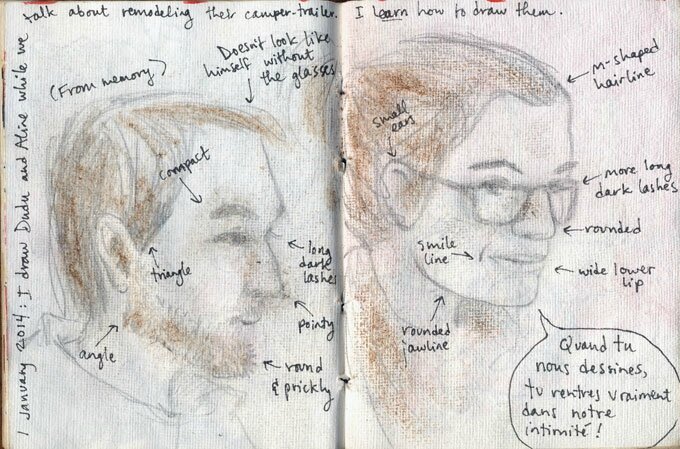 1 January 2014: I draw Dudu and Aline while we
talk about remodeling their camper-trailer.
I learn how to draw them.
(From memory)
Doesn't look like
himself without
the glasses
compact
triangle
angle
long
dark
lashes
pointy
round
& prickly
M-shaped
hairline
small
ears
more long
dark lashes
rounded
smile
line
wide lower
lip
rounded
jawline
Quand tu
nous dessines,
tu rentres vraiment
dans notre
intimité!